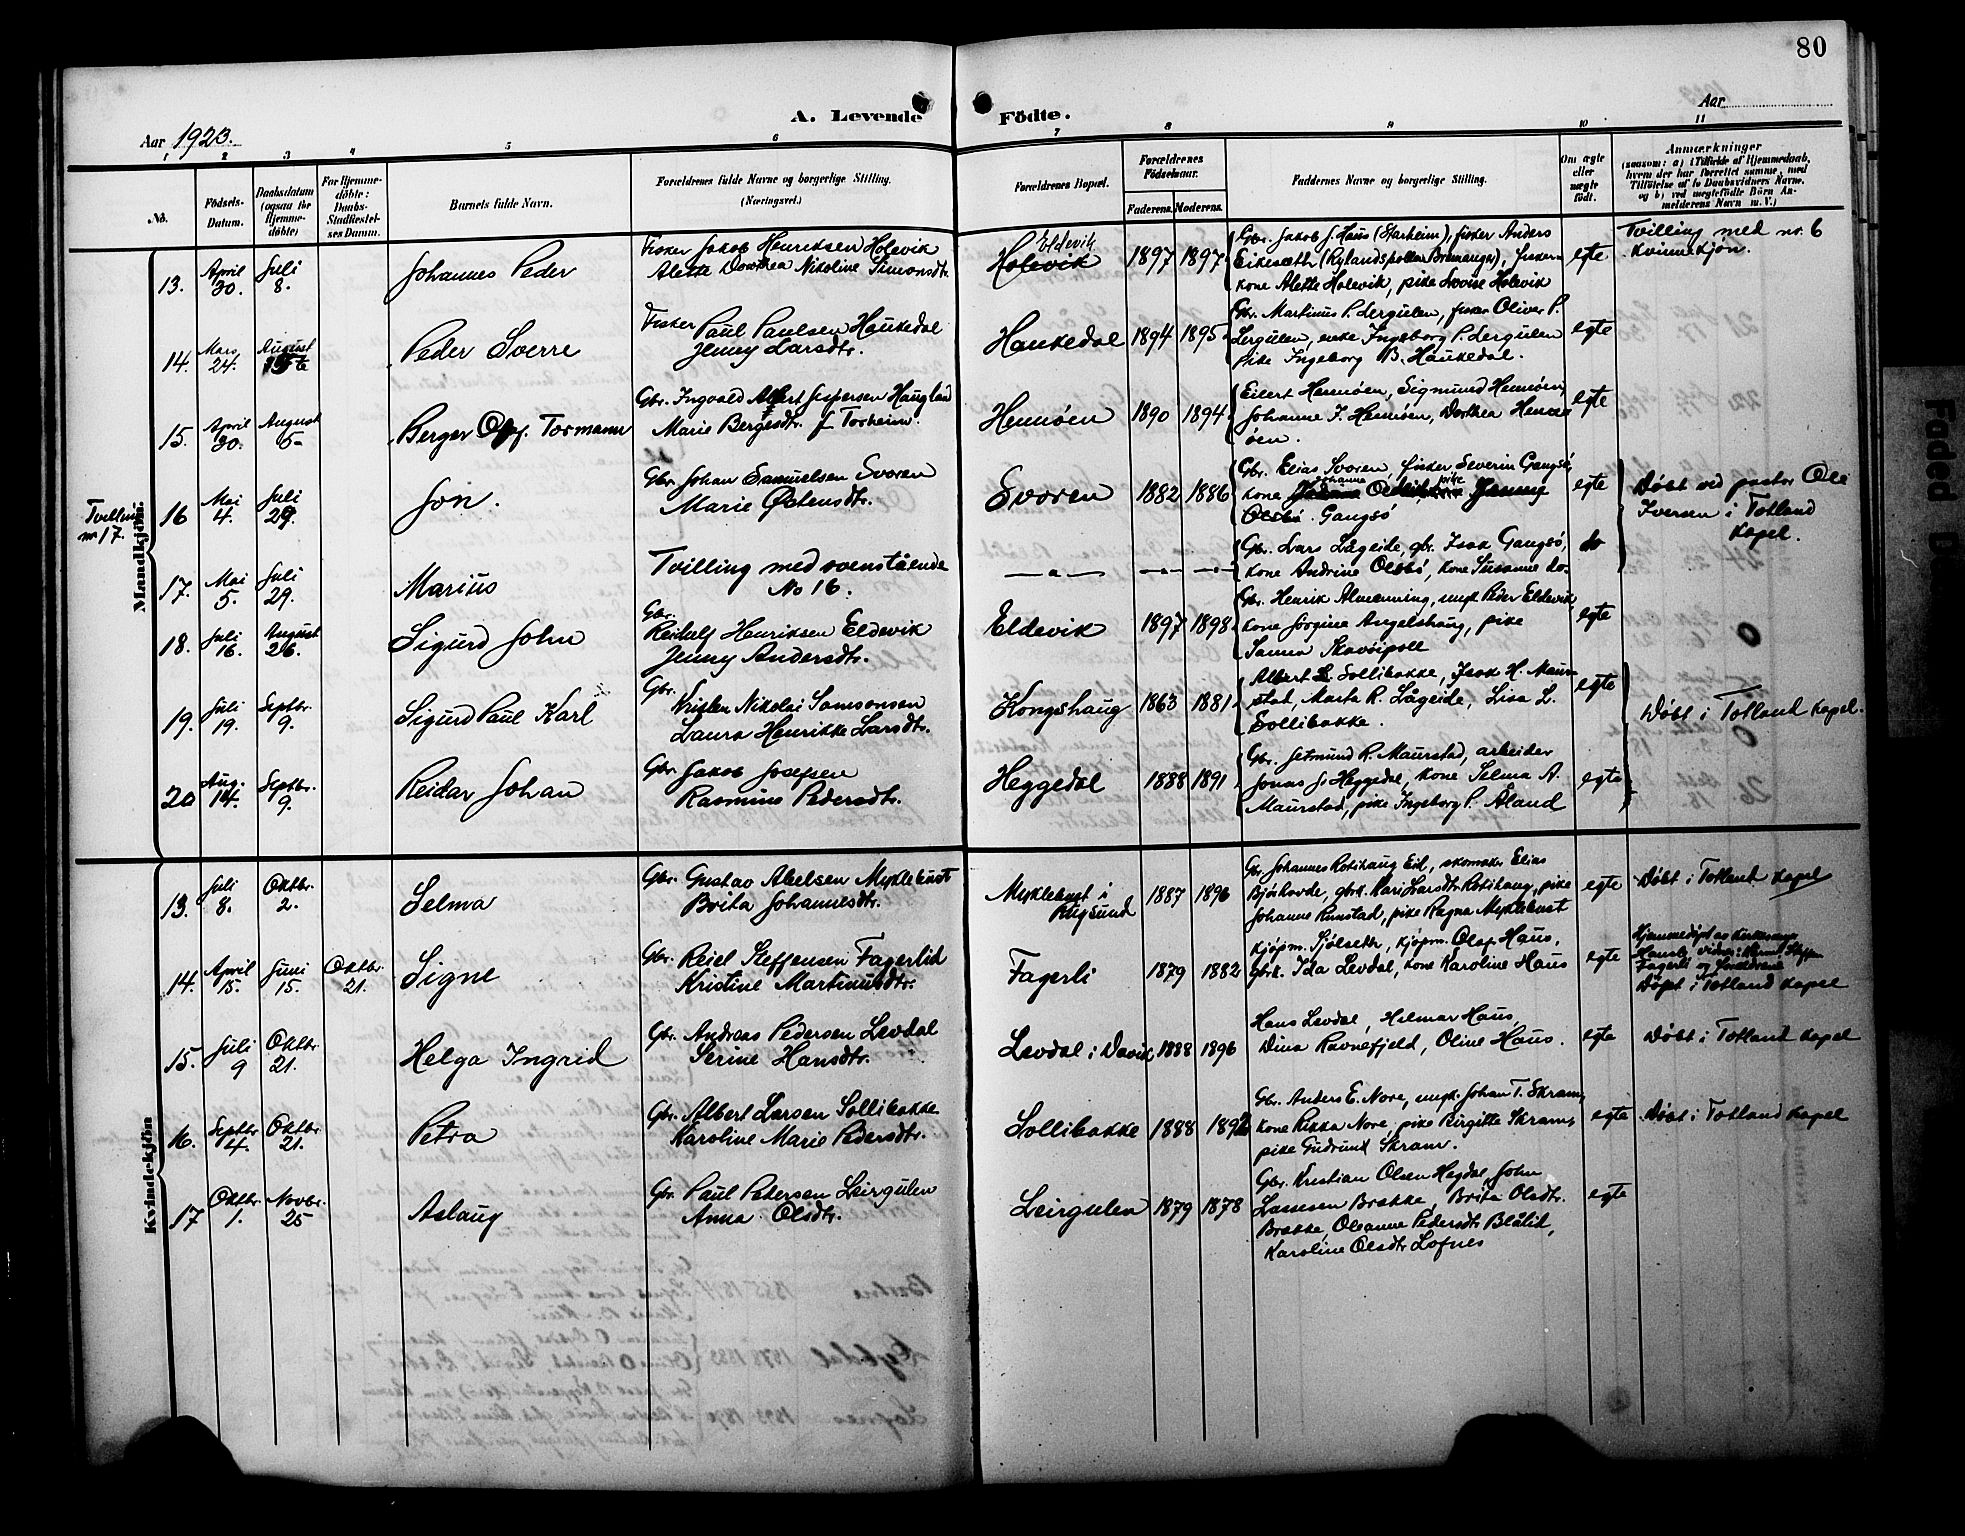 80
A. Levende Födte.
Aar 1923.
Aar
1 2 3 4 5 6 7 8 9 10 11
No.
Födsels-Datum.
Daabsdatum (ogsaa for Hjemme-döbte)
For Hjemme-döbte: Daabs-Stadfæstel-ses Datum.
Barnets fulde Navn.
Forældrenes fulde Navne og borgerlige Stilling.
(Næringsvei.)
Forældrenes Bopæl.
Forældrenes Födselsaar.
Faderens. Moderens.
Faddernes Navne og borgerlige Stilling.
Om ægte eller uægte födt.
Anmærkninger
(saasom: a) i Tilfælde af Hjemmedaab, hvem der har forrettet samme, med Tilföielse af to Daabsvidners Navne, og b) ved uægtefödte Börn Anmelderens Navn m. V.)
Mandkjön.
13. April 30. Juli 8. Johannes Peder
Fisker Jakob Henriksen Holevik
Alette Dorthea Nikoline Simonsdtr.
Eldevik
Holevik 1897 1897
Gbr. Jakob J. Haus (Starheim), fisker Anders
Eikeseth (Rylandspollen Bremanger), fisker-
kone Alette Holevik, pike Lovise Holevik
egte
Tvilling med nr. 6
kvinnekjøn.
14. Mars 24. August 5te Peder Sverre
Fisker Paul Paulsen Haukedal
Jenny Larsdtr.
Haukedal 1894 1895
Gbr. Martinus P. Lergulen, fisker Oliver P.
Lergulen, enke Ingeborg P. Lergulen
pike Ingeborg B. Haukedal.
egte
15. April 30. August 5 Berger Tormann
Gbr. Ingvald Albert Jespersen Haugland
Marie Bergesdtr. f Torheim.
Hennøen 1890 1894
Eilert Hennøen, Sigmund Hennøen,
Johanne J. Hennøen, Dorthea Henn-
øen.
egte
Tvilling
nr 17.
16 Mai 4. Juli 29. Jon.
Gbr. Johan Samuelsen Svoren
Marie Østensdtr.
Svoren 1882 1886
Gbr. Elias Svoren, fisker Severin Gangsø,
kone Johanne pike Jenny
Gangsø
egte
Døbt ved pastor Ole
Iversen i Totland
kapel.
17. Mai 5. Juli 29. Marius
Tvilling med ovenstående
No 16.
— " — — " — — " —
Gbr. Lars Lågeide, gbr. Isak Gangsø,
kone Andrine Olsbø, kone Susanne do.
do
18. Juli 16. August 26. Sigurd John
Gbr.
Reidulf Henriksen Eldevik
Jenny Andersdtr.
Eldevik 1897 1898
Gbr. Henrik Almenning, ungk. Peder Eldevik,
kone Jørgine Angelshaug, pike
Sanna Skavøipoll
egte
19. Juli 19. Septbr. 9. Sigurd Paul Karl
Gbr.
Kristen Nikolai Samsonsen
Laura Henrikke Larsdtr.
Kongshaug 1863 1881
Albert L. Sollibakke, Isak H. Maur-
stad, Marta R. Lågeide, Lisa L.
Sollibakke.
egte
Døbt i Totland kapel.
20 Aug. 14. Septbr. 9. Reidar Johan
Gbr. Jakob Josefsen
Rasmine Pedersdtr.
Heggedal 1888 1891
Gbr. Getmund R. Maurstad, arbeider
Jonas J. Heggedal, kone Selma A.
Maurstad, pike Ingeborg P. Åland
egte
Kvindekjön
13. Juli 8. Oktbr. 2. Selma
Gbr. Gustav Abelsen Myklebust
Brita Johannesdtr.
Myklebust i
Rugsund
1887 1896
Gbr. Johannes Rotihaug Eid, skomaker Elias
Bjørhovde, gbrk. Kari Larsdtr Rotihaug, pike
Johanne Runstad, pike Ragna Myklebust
egte
Døbt i Totland kapel
14. April 15. Juni 15. Oktbr. 21. Signe
Gbr. Reiel Steffensen Fagerlid
Kristine Martinusdtr.
Fagerli 1879 1882
Kjøpm. Sjølseth, kjøpm. Olaf Haus,
Gbrk. Ida Levdal, kone Karoline Haus
egte
Hjemmedøpt av
Fagerli og foreldrene
Døpt i Totland kapel
15. Juli 9 Oktbr. 21. Helga Ingrid
Gbr. Andreas Pedersen Levdal
Serine Hansdtr.
Levdal i Davik 1888 1896
Hans Levdal, Hilmar Haus,
Dina Ravnefjeld, Oline Haus.
egte
Døbt i Totland kapel
16. Septbr. 4. Oktbr. 21. Petra
Gbr. Albert Larsen Sollibakke
Karoline Marie Pedersdtr.
Sollibakke 1888 1892
Gbr. Anders E. Nore, ungk. Johan T. Skram,
kone Rikka Nore, pike Birgitte Skram,
pike Gudrund Skram.
egte
Døbt i Totland kapel
17 Oktbr. 1. Novbr. 25 Aslaug
Gbr. Paul Pedersen Leirgulen
Anna Olsdtr.
Leirgulen 1879 1878
Gbr. Kristian Olsen Hegdal, John
Larssen Brække, Brita Olsdtr.
Brække, Olsanne Pedersdtr Blålid,
Karoline Olsdtr Lofnes
egte
Faded